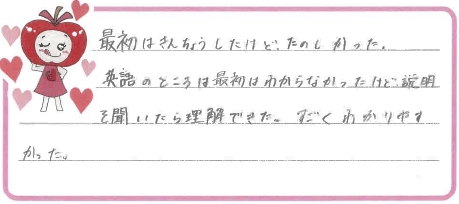 最初はきんちょうしたけど、たのしかった。
英語のところは最初はわからなかったけど、説明
を聞いたら理解できた。すごくわかりやす
かった。